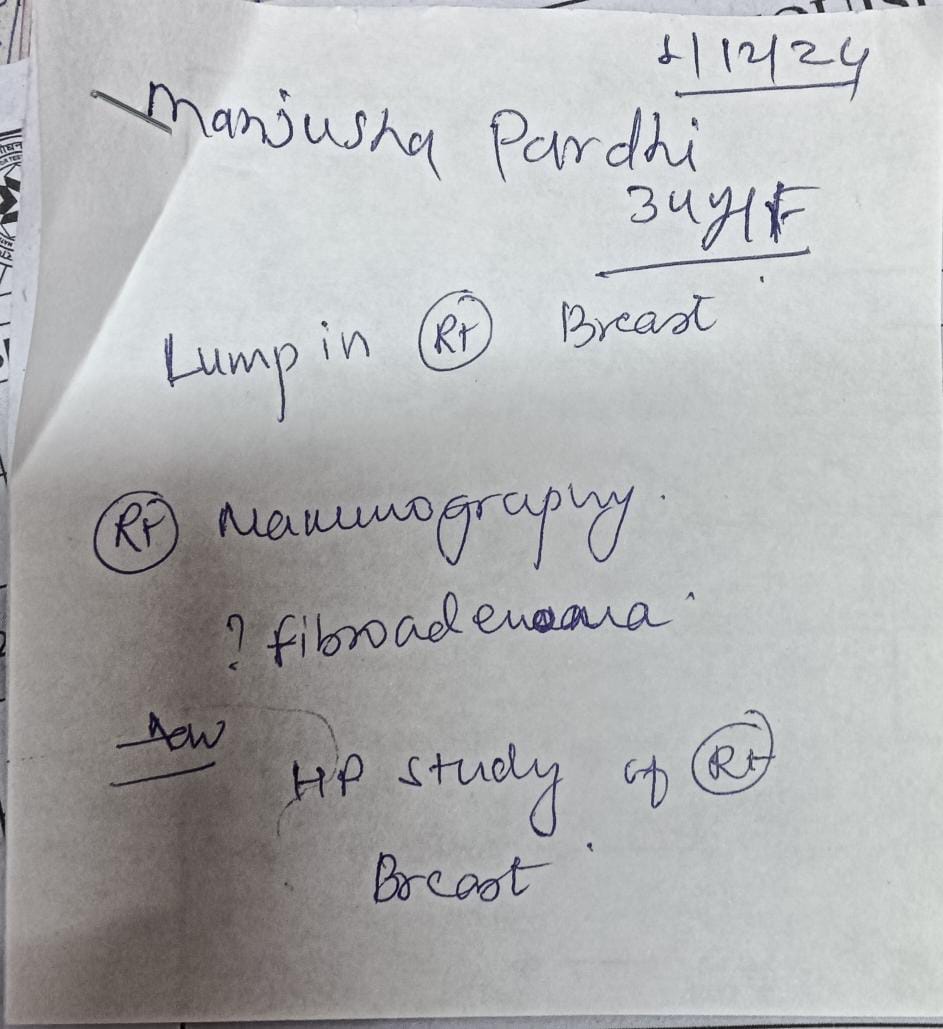 1/12/24
Manjusha Pardhi
34y/F
Lump in Rt Breast
Rt Mammography.
? fibroadenoma
HP study of Rt
Breast